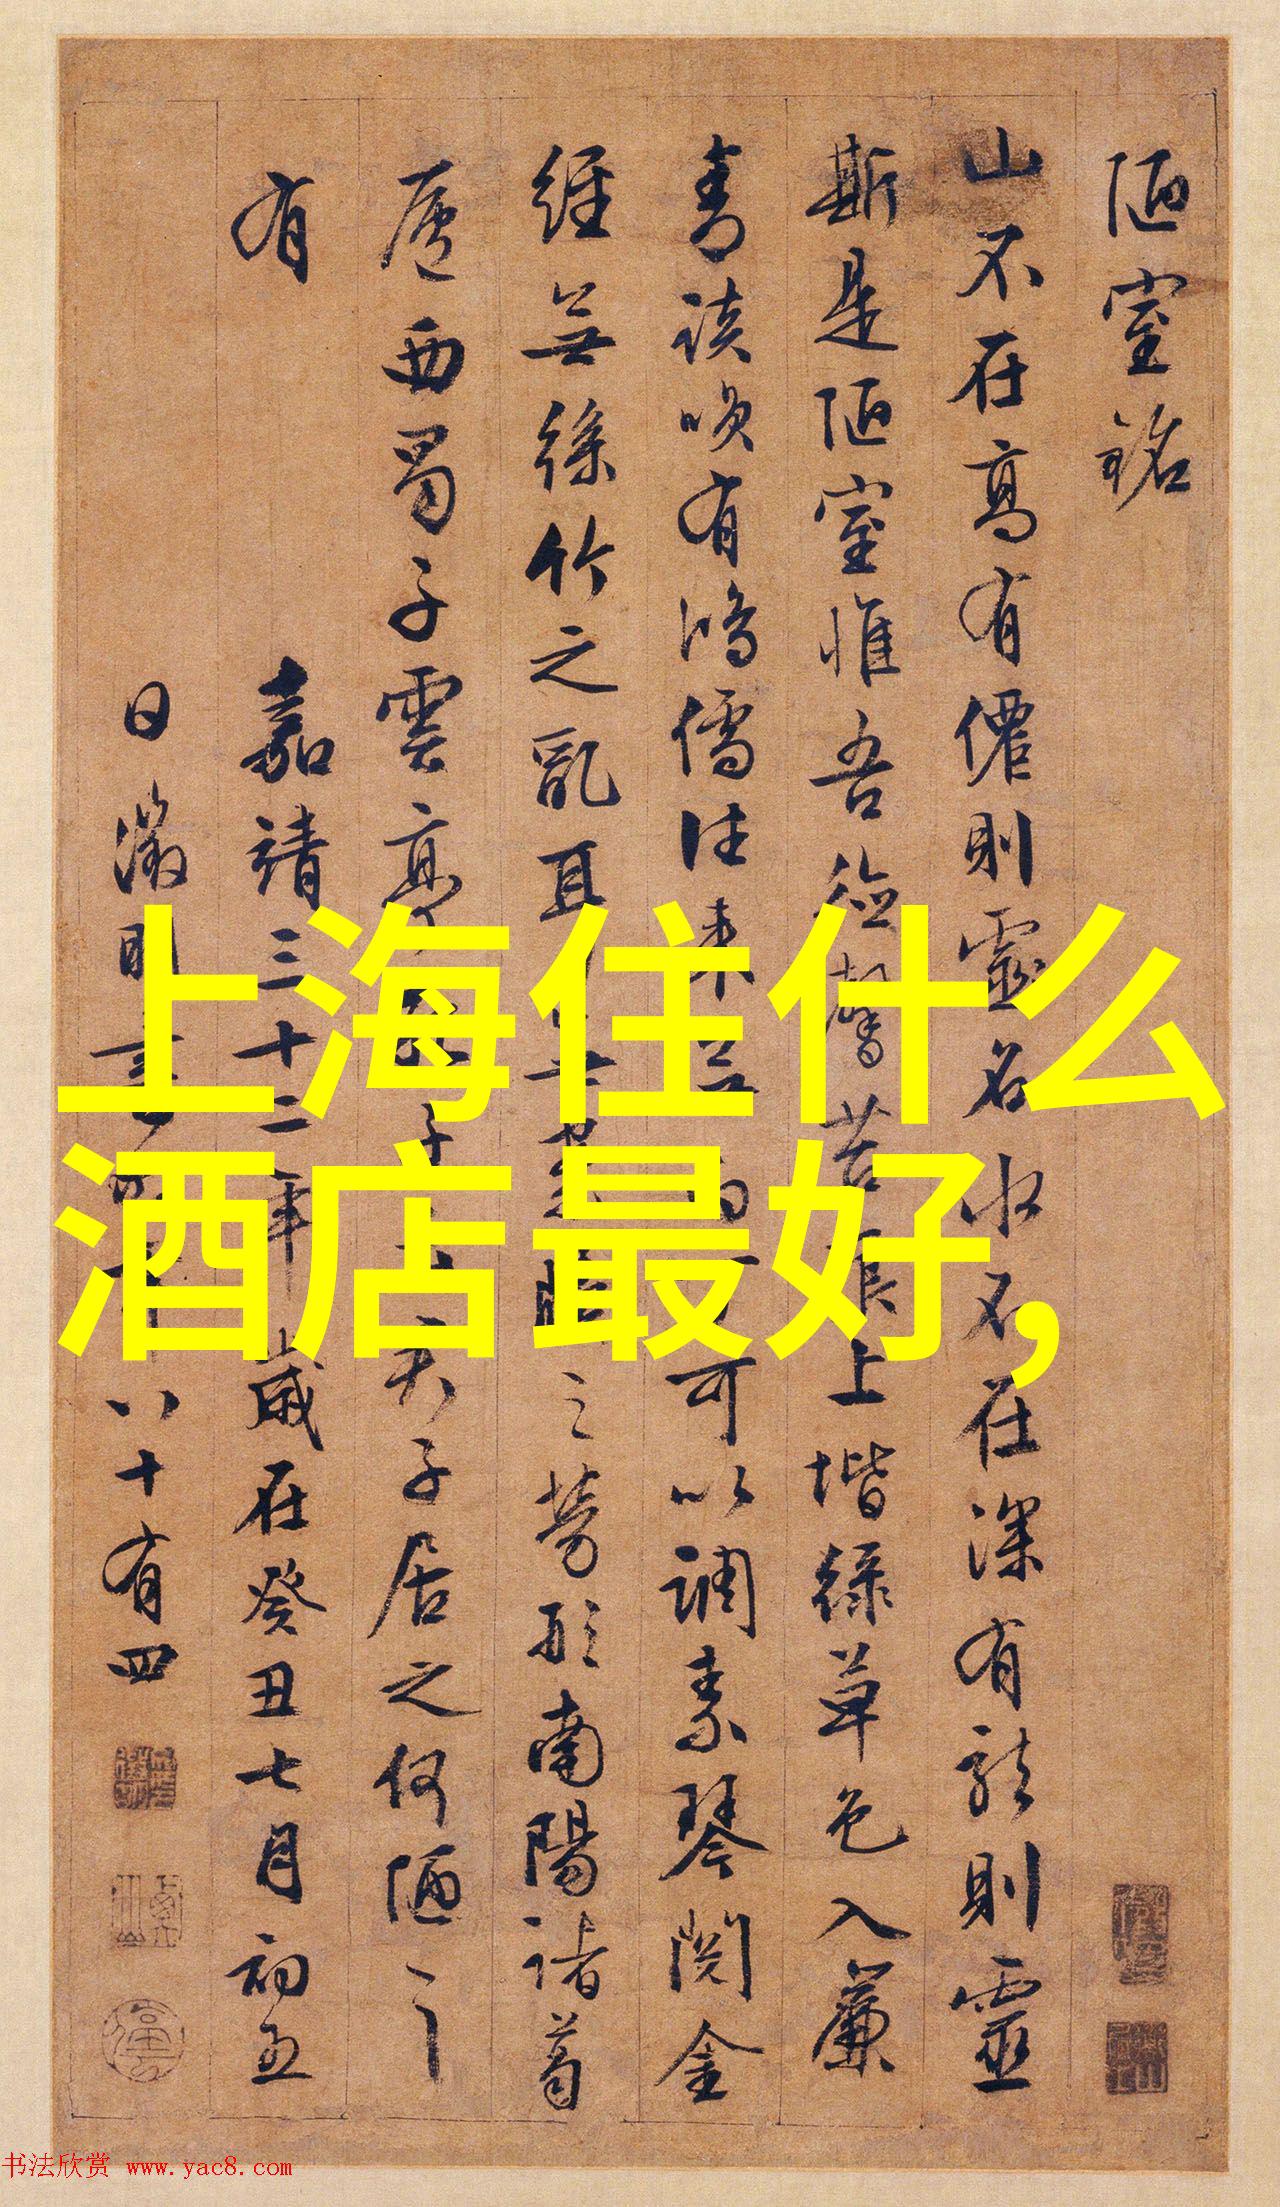 陋室銘
山不在高有僊則靈名水不在深有龍則靈
斯是陋室惟吾德馨苔痕上堦緑草色入簾
青談咲有鴻儒往来可以調素琴閱金
經無絲竹之亂耳之勞形南陽諸葛
廬西蜀子雲亭子居之何陋之
有
嘉靖三十二年歲在癸丑七月初五
日徵明書八十有四
上海住什么
酒店最好,
书法欣赏 www.yac8.com